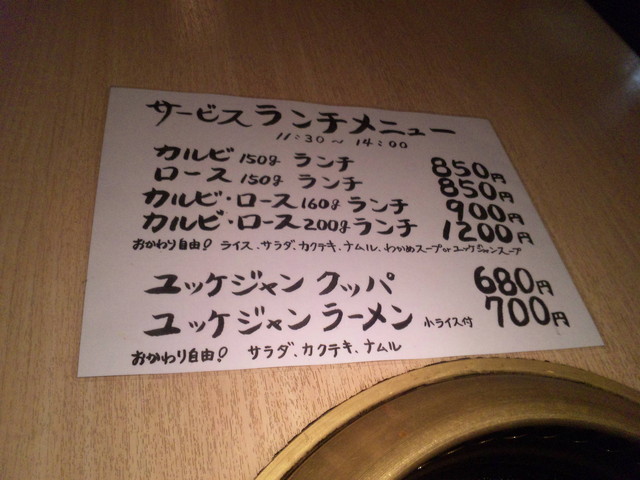 サービスランチメニュー
11:30～14:00
カルビ 150g ランチ 850円
ロース 150g ランチ 850円
カルビ・ロース 160g ランチ 900円
カルビ・ロース 200g ランチ 1200円
おかわり自由! ライス、サラダ、カクテキ、ナムル、わかめスープorユッケジャンスープ
ユッケジャン クッパ 680円
ユッケジャン ラーメン 小ライス付 700円
おかわり自由! サラダ、カクテキ、ナムル